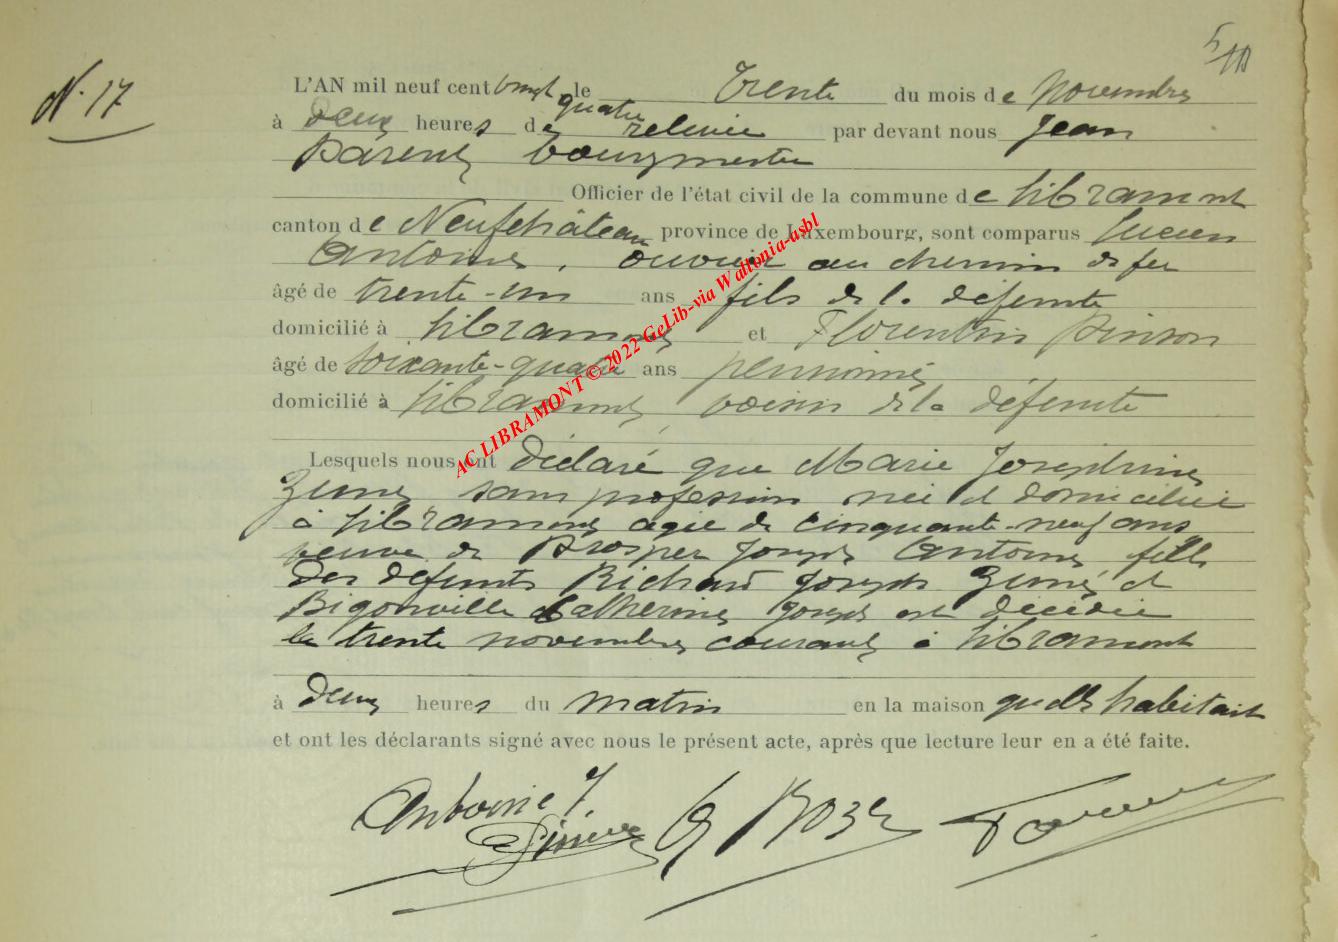 N. 17
L'AN mil neuf cent vingt quatre le Trente du mois de Novembre
à Deux heures de relevée par devant nous Jean
Parent bourgmestre
Officier de l'état civil de la commune de Libramont
canton de Neufchâteau province de Luxembourg, sont comparus Lucien
Antoine, ouvrier au chemin de fer
âgé de trente-un ans fils de la défunte
domicilié à Libramont et Florentin Pinson
âgé de Soixante-quatre ans pensionné
domicilié à Libramont, voisin de la défunte
Lesquels nous ont déclaré que Marie Joséphine
sans profession née et domiciliée
à Libramont agée de cinquante-neuf ans
veuve de Prosper Joseph Antoine fille
des défunts Richard Joseph et
Bigonville Catherine Joseph est décédée
le trente novembre courant à Libramont
à Deux heures du matin en la maison qu'elle habitait
et ont les déclarants signé avec nous le présent acte, après que lecture leur en a été faite.
Antoine
AC LIBRAMONT © 2022 GeLib-via Wallonia-asbl